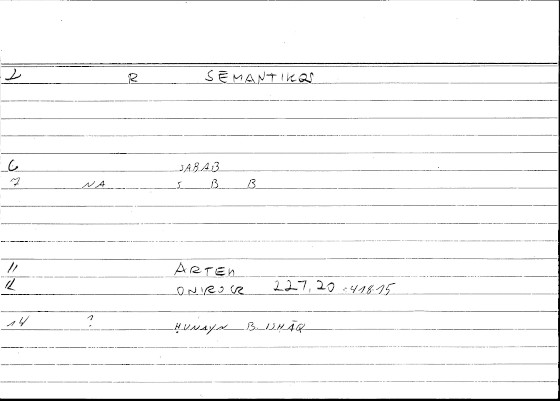 2 R SEMANTIKOS
6 SABAB
7 NA S B B
11 ARTEM
12 ONIROCR 227,20 - 41815
14 ? ḤUNAYN B ISḤĀQ